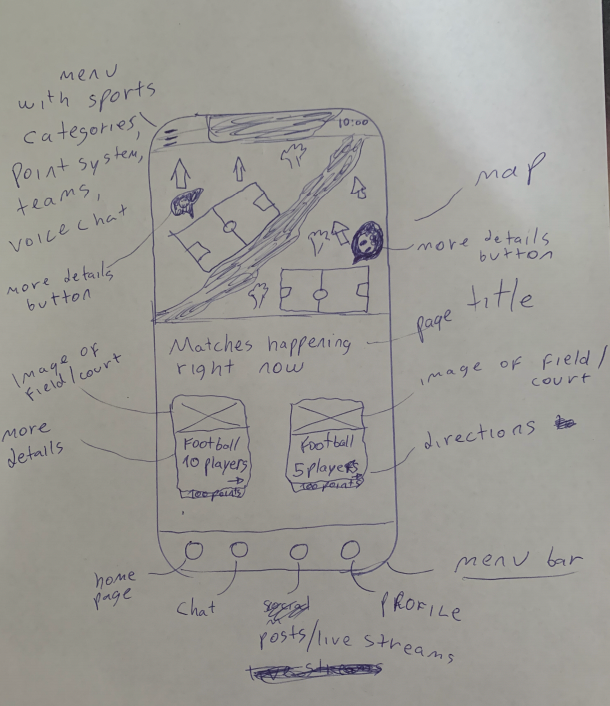 menu
with sports
categories,
point system,
teams,
voice chat
10:00
map
more details
button
more details
button
page title
Matches happening
right now
Image of
field/court
image of field/
court
more
details
Football
10 players
100 points
Football
5 players
100 points
directions
home
page
chat
posts/live streams
live streams
PROFILE
menu bar